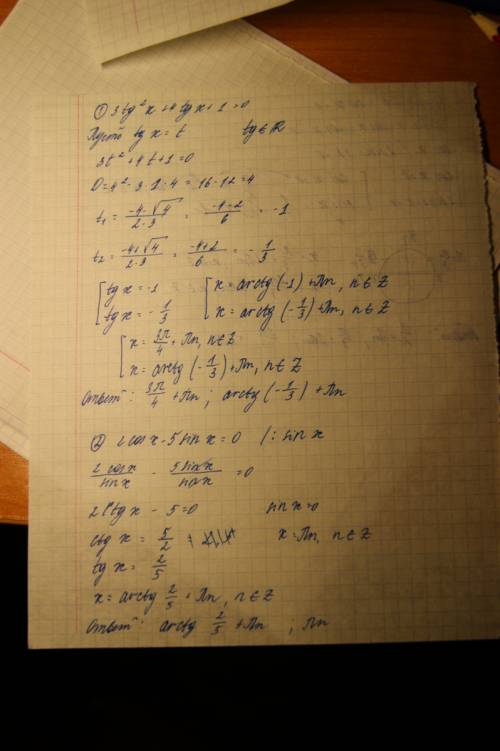 ① 3tg²x+4tgx+1=0
Пусть tg x = t tg ∈ R
3t²+4t+1=0
D=4²-3·1·4=16-12=4
t₁ = (-4-√4)/(2·3) = (-4-2)/6 = -1
t₂ = (-4+√4)/(2·3) = (-4+2)/6 = -1/3
[ tg x = -1 [ x = arctg(-1)+πn, n∈Z
[ tg x = -1/3 [ x = arctg(-1/3)+πn, n∈Z
[ x = 3π/4 + πn, n∈Z
[ x = arctg(-1/3)+πn, n∈Z
Ответ: 3π/4 + πn; arctg(-1/3) + πn
② 2cosx-5sinx=0 /: sin x
2cosx/sinx - 5sinx/sinx = 0
2ctgx - 5=0 sin x=0
ctg x = 5/2 x=πn, n∈Z
tg x = 2/5
x = arctg 2/5 + πn, n∈Z
Ответ: arctg 2/5 + πn ; πn